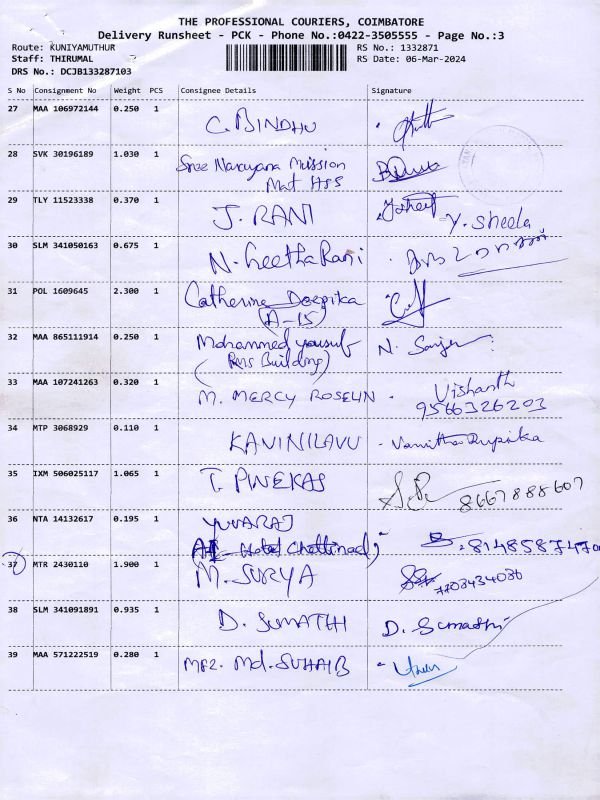 THE PROFESSIONAL COURIERS, COIMBATORE
Delivery Runsheet - PCK - Phone No.:0422-3505555 - Page No.:3
Route: KUNIYAMUTHUR RS No.: 1332871
Staff: THIRUMAL RS Date: 06-Mar-2024
DRS No.: DCJB133287103
S No Consignment No Weight PCS Consignee Details Signature
27 MAA 106972144 0.250 1 C. BINDHU
28 SVK 30196189 1.030 1 Sree Narayana Mission
Mat HSS
29 TLY 11523338 0.370 1 J. RANI Y. Sheela
30 SLM 341050163 0.675 1 N. Geetha Rani
31 POL 1609645 2.300 1 Catherine Deepika
(A-15)
32 MAA 865111914 0.250 1 Mohammed yousuf N. Sanjer
(Rms Building)
33 MAA 107241263 0.320 1 M. MERCY ROSELIN Vishanth
9566326203
34 MTP 3068929 0.110 1 KAVINILAVU Vanitha Rupika
35 IXM 506025117 1.065 1 T. PINEKAS 8667888607
36 NTA 14132617 0.195 1 YUVARAJ
Hotel Chettinad 814858747
37 MTR 2430110 1.900 1 M. SURYA 7703434036
38 SLM 341091891 0.935 1 D. SUMATHI D. Sumathi
39 MAA 571222519 0.280 1 Md. SUHAIB